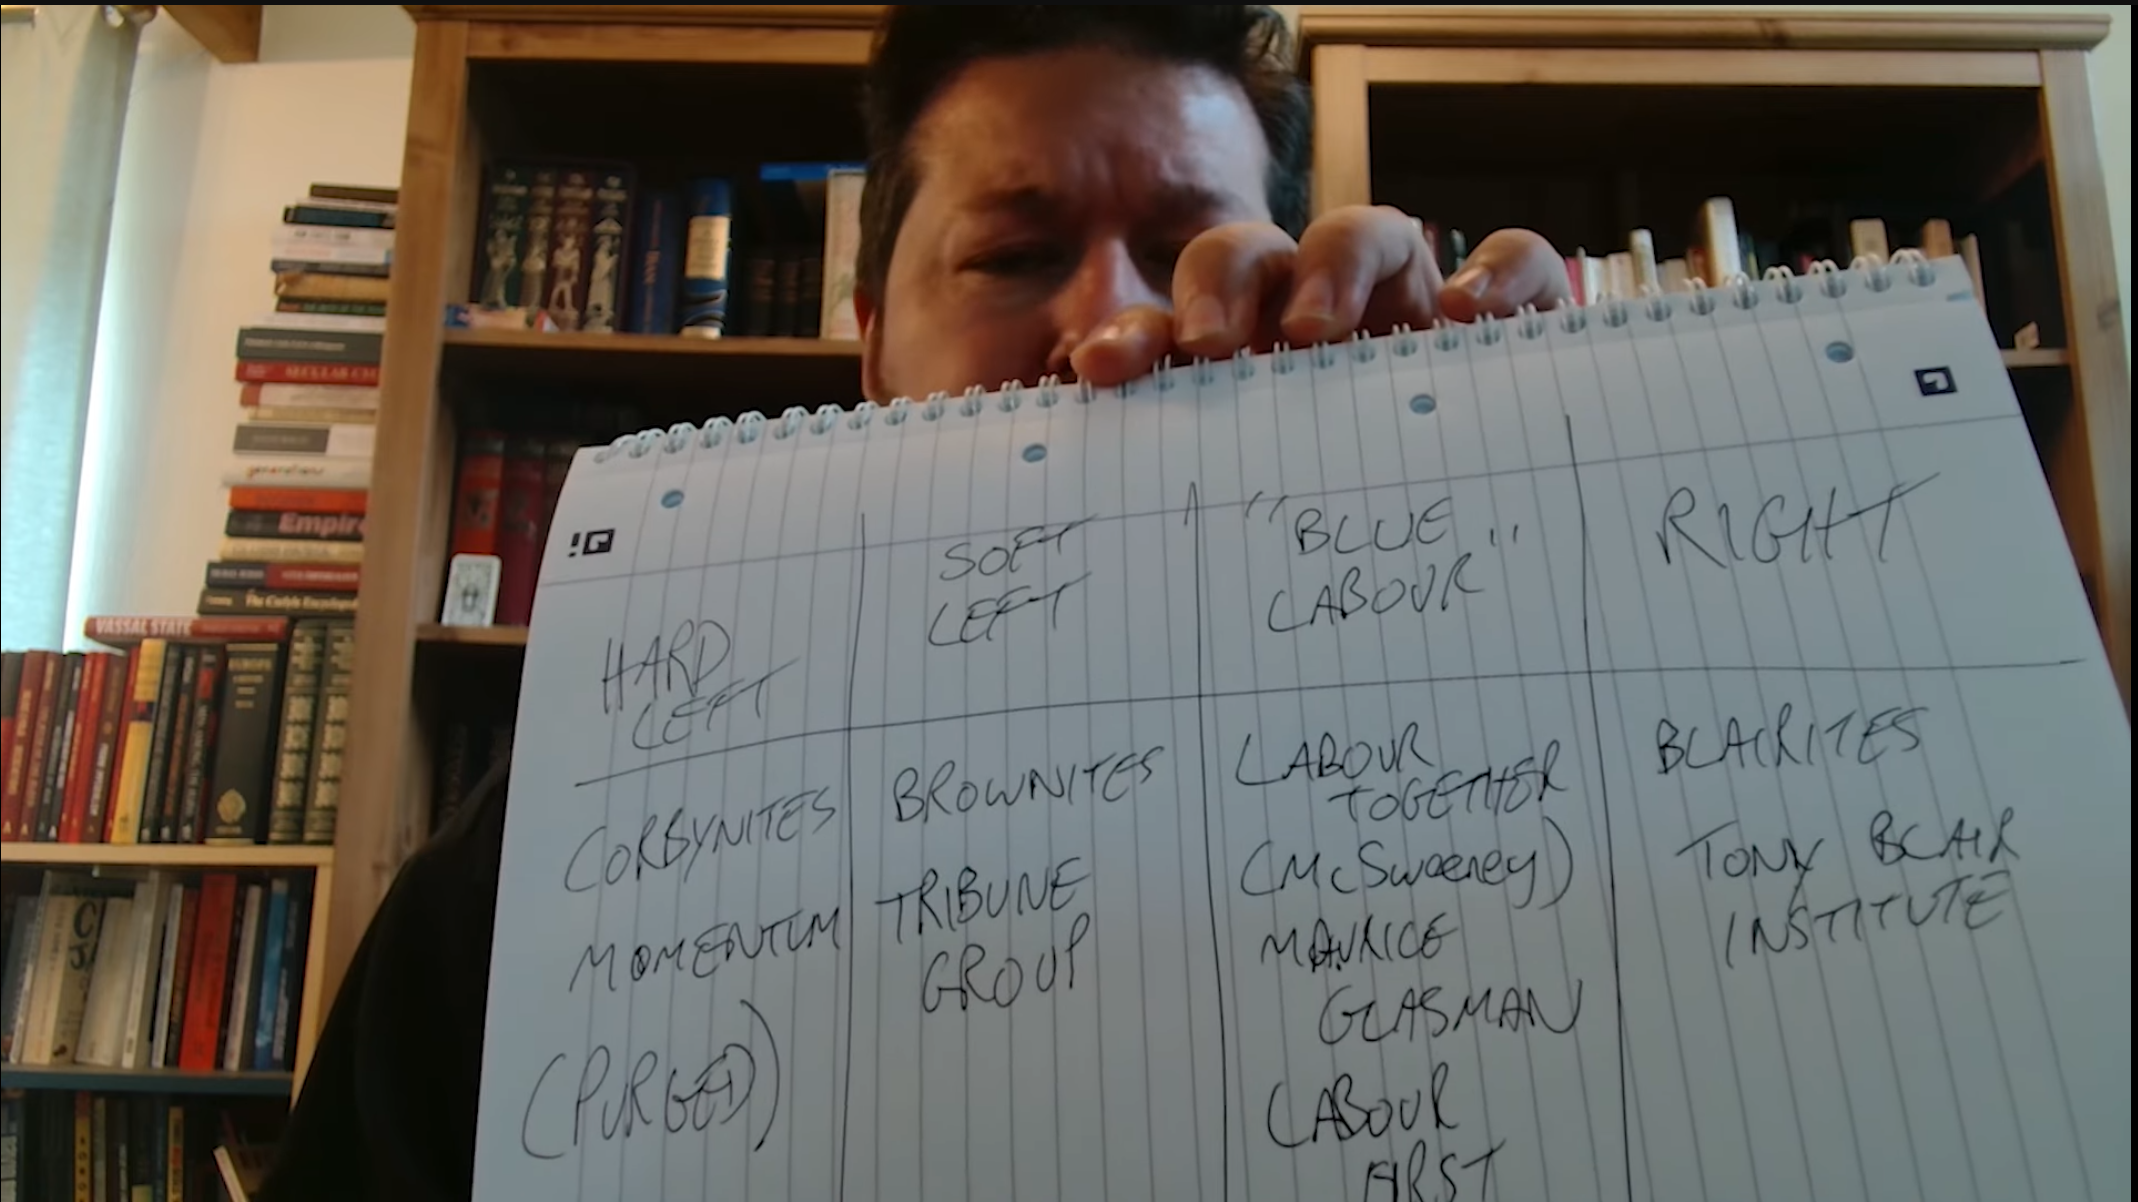 HARD
LEFT
SOFT
LEFT
"BLUE
LABOUR"
RIGHT
CORBYNITES
MOMENTUM
(PURGED)
BROWNITES
TRIBUNE
GROUP
LABOUR
TOGETHER
(McSweeney)
MAURICE
GLASMAN
LABOUR
FIRST
BLAIRITES
TONY BLAIR
INSTITUTE
generations
Empire
The Carlyle Encyclopedia
VASSAL STATE